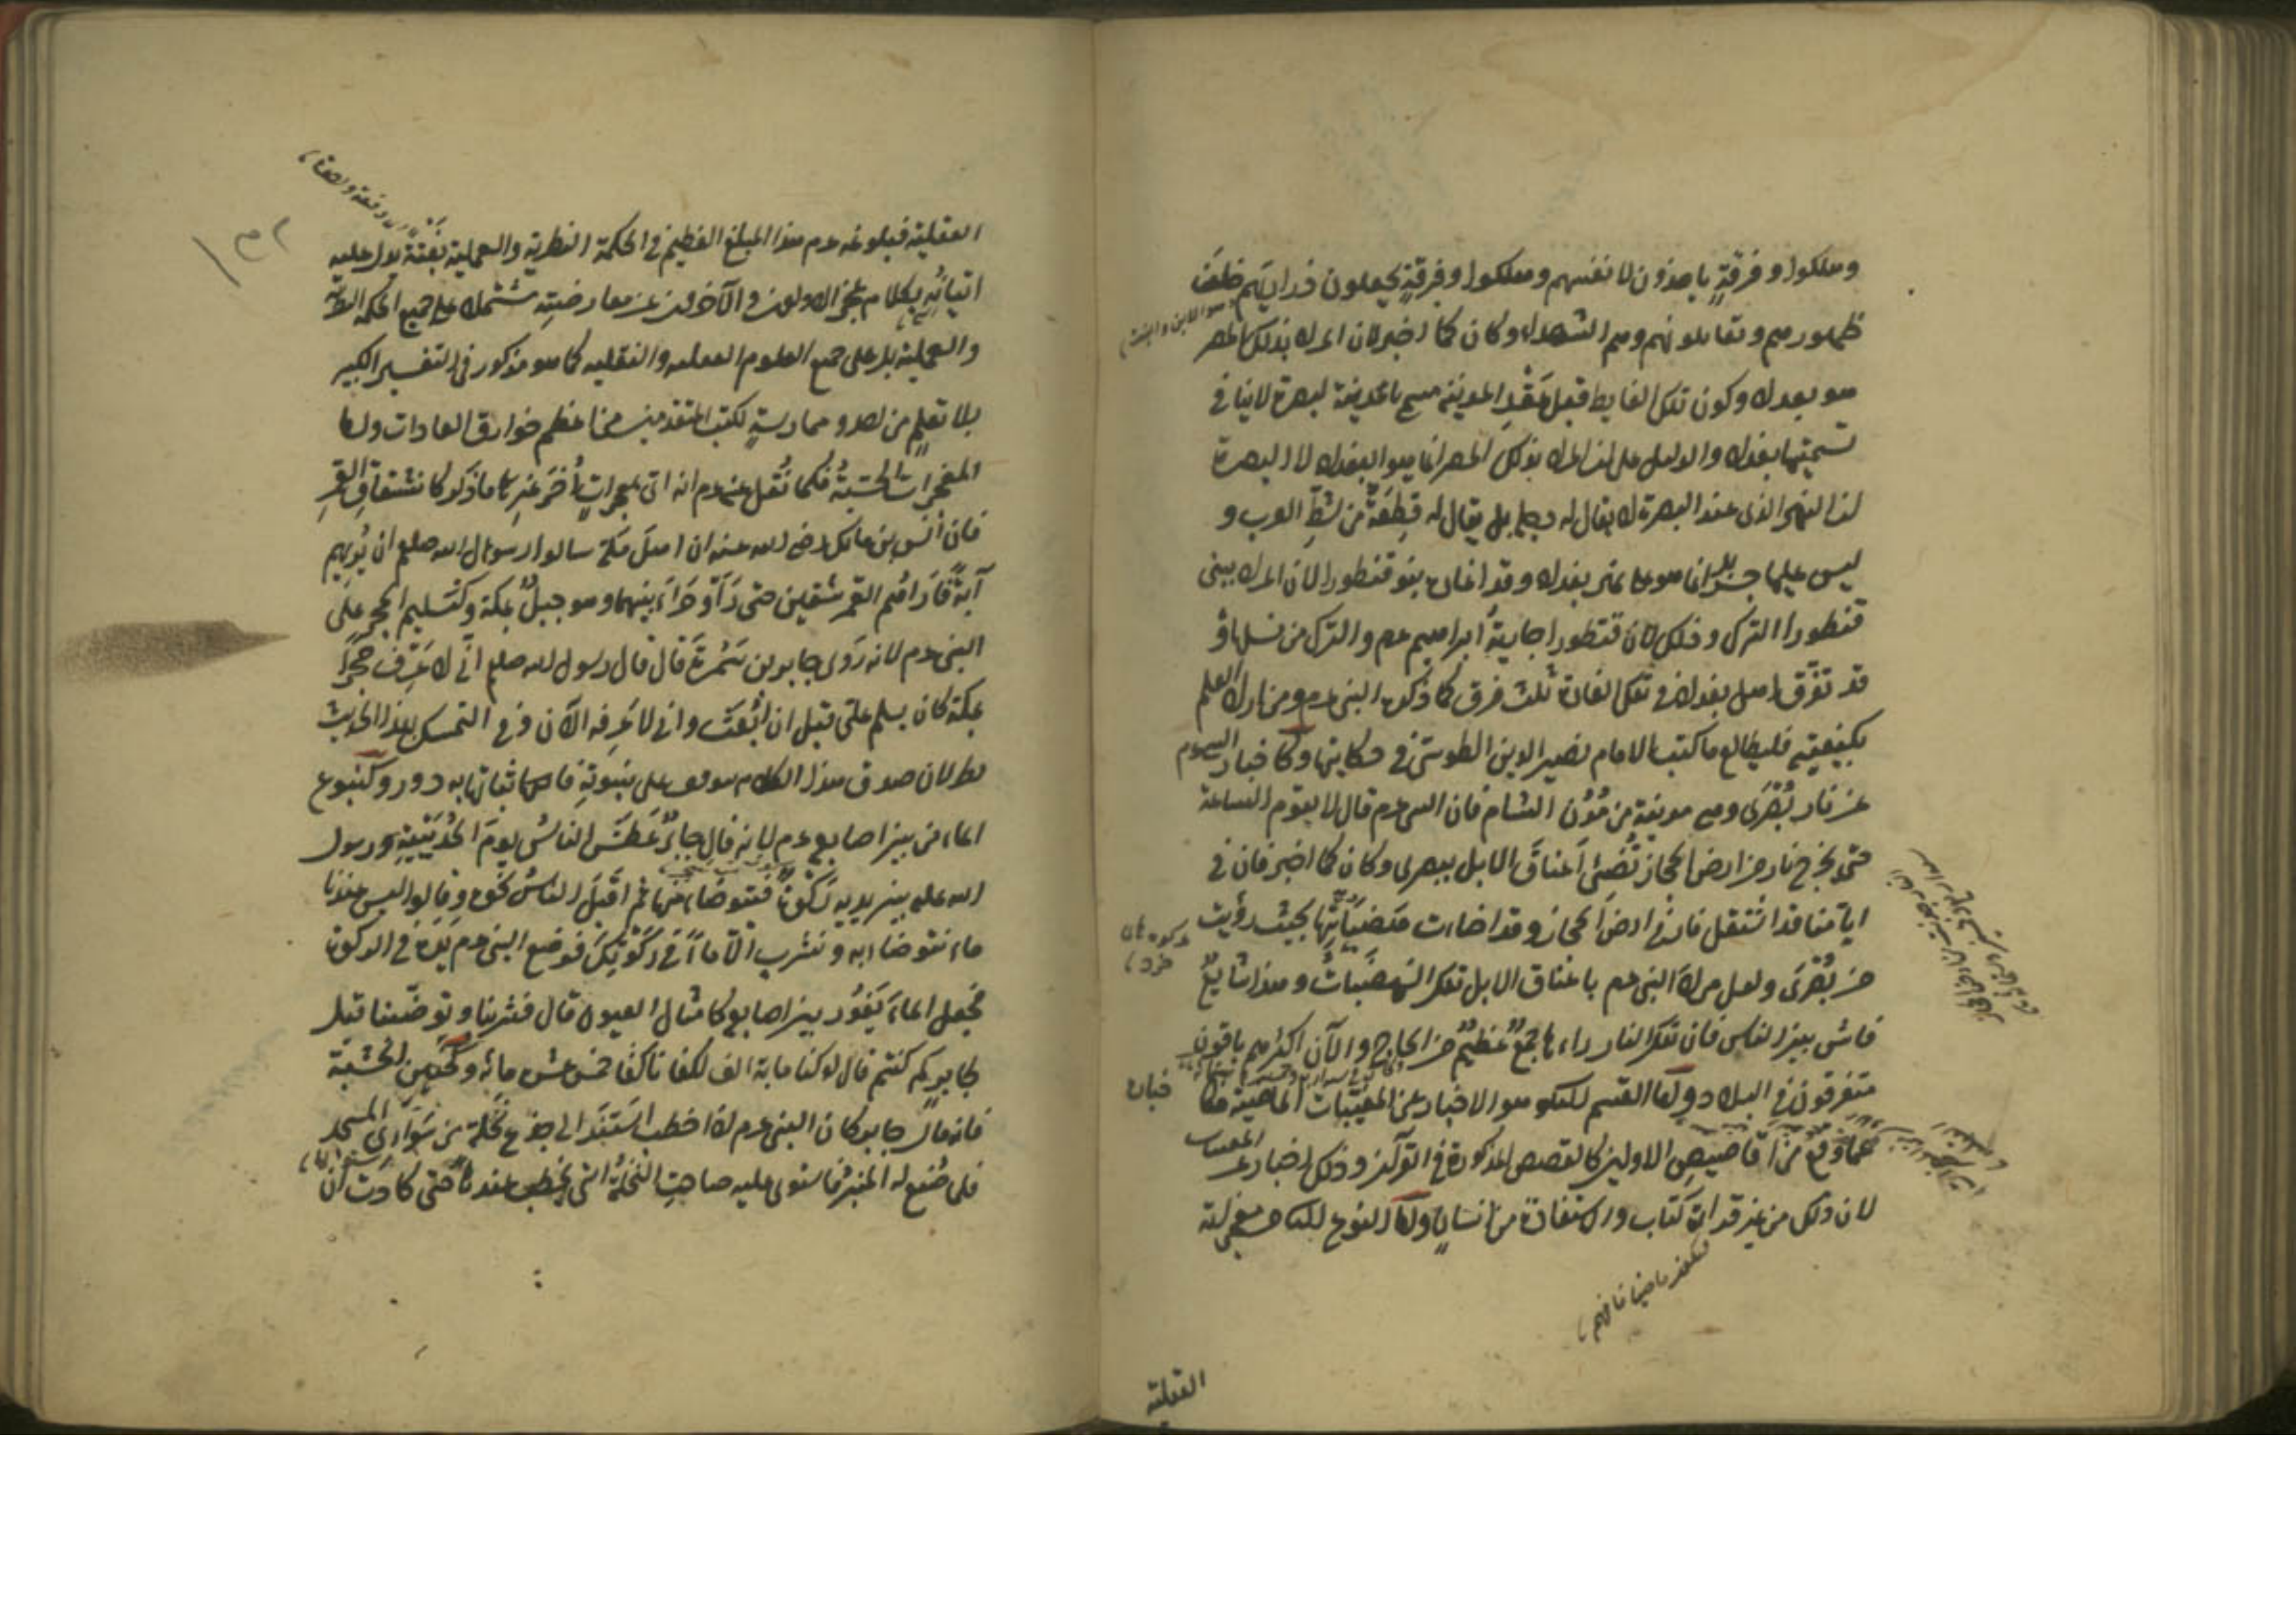 وهلكوا وفرقةٍ ياخذون لانفسهم وهلكوا وفرقةٍ يجعلون ذراريهم خلفَ
ظهورهم ويقاتلونهم وهم الشهداء وكان كما اخبر لان المراد بذلك المصر
هو بغداد وكون تلك الغايط قبل عَقْدِ المدينة مسمى بالمدينة لبصرة لا ينافي
تسميتها بغداد والدليل على ان المراد بذلك المصر انما هو البغداد لا البصرة
لان النهر الذى عند البصرة لا يقال له دجلة بل يقال له قِطعَةٌ من شط العرب و
ليس عليها جسر بل انما هو على نهر بغداد وقد اغار بنو قنطورا لان المراد ببنى
قنطورا الترك وذلك لان قنطورا جاريةُ ابراهيم عم والترك من نسلها و
قد تفرّق اهل بغداد في تلك الغارة ثلث فرق كما ذكره النبى عم ومن اراد العلم
بكيفيته فليطالع ما كتب الامام نصير الدين الطوسى في حكايتها وكاخباره
عن نار بُصْرَى وهى مدينة من مُدُن الشام فان النبى عم قال لا يقوم الساعة
حتى يخرج نار من ارض الحجاز تُضيئ اَعناقَ الابل ببصرى وكان كما اخبر فان في
ايامنا قد اشتعل نار في ارض الحجاز وقد اضاءت بحيث رؤيت
من بُصْرَى ولعل مراد النبى عم باعناق الابل تلك الهضَبَاتُ وهذا شايعٌ
فاش بين الناس فان تلك النار راءها جمعٌ عظيمٌ من الحجاج والآن اكثرهم باقون
متفرقون في البلاد ولها القسم الثانى وهو الاخبار عن المغيّبات الماضية فكا
خباره
عمّا وقع من اقاصيص الاولين كالقصص المذكورة في القرآن وذلك اخبار عن المغيبات
لان ذلك من غير قراءة كتاب ولا استفادة من انسان ولها النوع الثانى من معجزاته
العقلية
العقلية فبلوغه عم هذا المبلغ العظيم في الحكمة النظرية والعملية بَغتةً يدل عليه
اتيانُه بكلام عجز الاولون والآخرون عن معارضته مشتملا على جميع الحكمة النظرية
والعملية بل على جميع العلوم العقليه والنقليه كما هو مذكور فى التفسير الكبير
بلا تعلم من احد وممارسةٍ لكتب المتقدمين من اعظم خوارق العادات ولها
المعجزات الحسّيةُ فكما نُقل عنه عم انه اتى بمعجراتٍ اُخَرَ غيرِ ما ذكر كانشقاقِ القمرِ
فان اَنَس بن مالك رضى الله عنه ان اهلَ مكة سالوا رسول الله صلعم ان يُريهم
آيةً فاَراهُم القمر شقين حتى رَاَوْ حِرَاءَ بينهما وهو جبلٌ بمكة وكتسليم الحجر على
النبى عم لانه رَوى جابر بن سَمُرَة قال قال رسول الله صلعم انّى لاَعرِف حجرًا
بمكة كان يسلم علىّ قبل ان اُبْعَثَ وانى لاعرِفه الآن وفى التمسك بهذا الحديث
نظر لان صدق هذا الكلام موقوف على نبوته فاثباتها به دور وكنبوع
الماء من بين اصابعه عم لانه قال جابرٌ عَطَشَ الناسُ يومَ الحُدَيْبيةِ ورسول
الله عليه بين يديه رَكْوَة فتوضاء منها ثم اقبَلَ الناسُ نحوه وقالوا ليس عندنا
ماء نتوضاء به ونشرب الّا ما في رَكْوَتِكَ فوضع النبى عم يَدَه في الركوة
فجعل الماءُ يَفُورُ بين اصابعه كامثال العيون قال فشربنا وتوضّئنا قيل
لجابر كم كنتم قال لو كنا ماية الف لكفانا كُنّا خمس عشر مائة وكحنين الخشبة
فانه قال جابر كان النبى عم اذا خطب استَنَد الى جذع نخلةٍ من سَوارِى المسجد
فلما صُنع له المنبرُ فاستوى عليه صاحتِ النخلةُ التى يخطب عندها حتى كادت ان